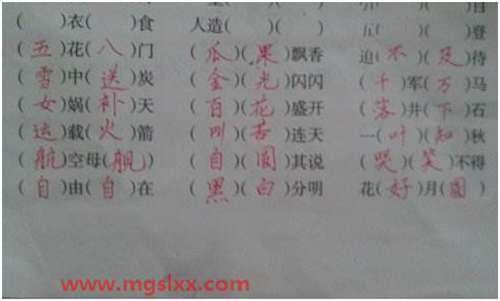 (　)衣(　)食　人造(　)(　)　五(　)(　)登
(五)花(八)门　(瓜)(果)飘香　迫(不)(及)待
(雪)中(送)炭　(金)(光)闪闪　(千)军(万)马
(女)娲(补)天　(百)(花)盛开　(落)井(下)石
(运)载(火)箭　(叫)(苦)连天　一(叶)(知)秋
(航)空母(舰)　(自)(圆)其说　(哭)(笑)不得
(自)由(自)在　(黑)(白)分明　花(好)月(圆)
www.mgslxx.com